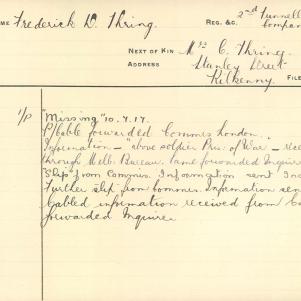 ME Frederick D. Thring.
REG. &C. 2nd Tunnell
Compan
NEXT OF KIN Mrs C. Thring.
ADDRESS Stanley Street
Kilkenny.
FILE
1/P "Missing" 10.7.17.
P/Cable forwarded Commis London.
Information - "above soldier Pris. of War - rece
through Melb. Bureau. Same forwarded Inquire
Slip from Commis. Information sent Inq
Further slip from Commis. Information sen
Cabled information received from
forwarded Inquirer